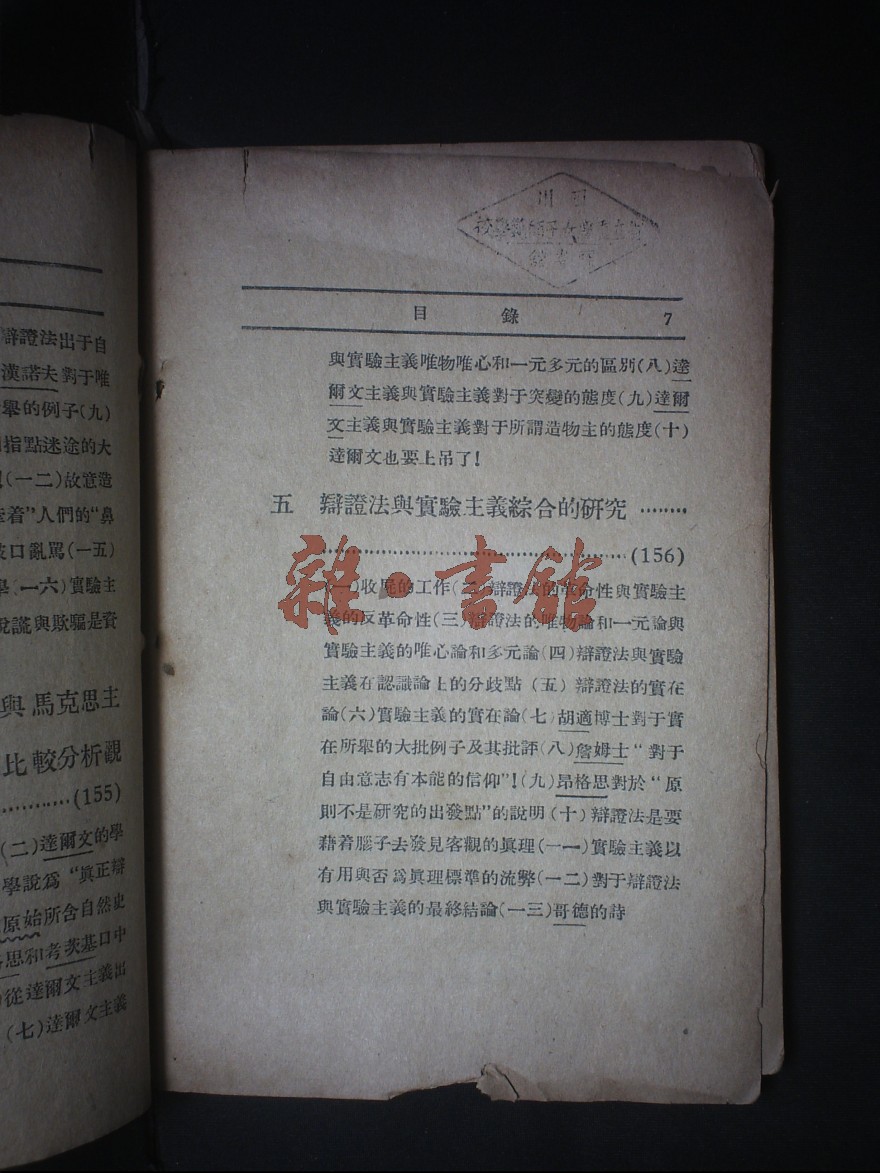 辯證法出于自
漢諾夫對于唯
舉的例子(九)
指點迷途的大
(一二)故意造
着”人們的“鼻
口亂罵(一五)
(一六)實驗主
說謊與欺騙是資
與馬克思主
比較分析觀
…………(155)
(二)達爾文的學
學說爲“眞正辯
原始所含自然史
思和考茨基口中
從達爾文主義出
(七)達爾文主義
目錄 7
與實驗主義唯物唯心和一元多元的區別(八)達
爾文主義與實驗主義對于突變的態度(九)達爾
文主義與實驗主義對于所謂造物主的態度(十)
達爾文也要上吊了!
五 辯證法與實驗主義綜合的研究………
……………………………………(156)
(一)收尾的工作(二)辯證法的革命性與實驗主
義的反革命性(三)辯證法的唯物論和一元論與
實驗主義的唯心論和多元論(四)辯證法與實驗
主義在認識論上的分歧點(五)辯證法的實在
論(六)實驗主義的實在論(七)胡適博士對于實
在所舉的大批例子及其批評(八)詹姆士“對于
自由意志有本能的信仰”!(九)昂格思對於“原
則不是研究的出發點”的說明(十)辯證法是要
藉着腦子去發見客觀的眞理(一一)實驗主義以
有用與否爲眞理標準的流弊(一二)對于辯證法
與實驗主義的最終結論(一三)哥德的詩
雜·書館